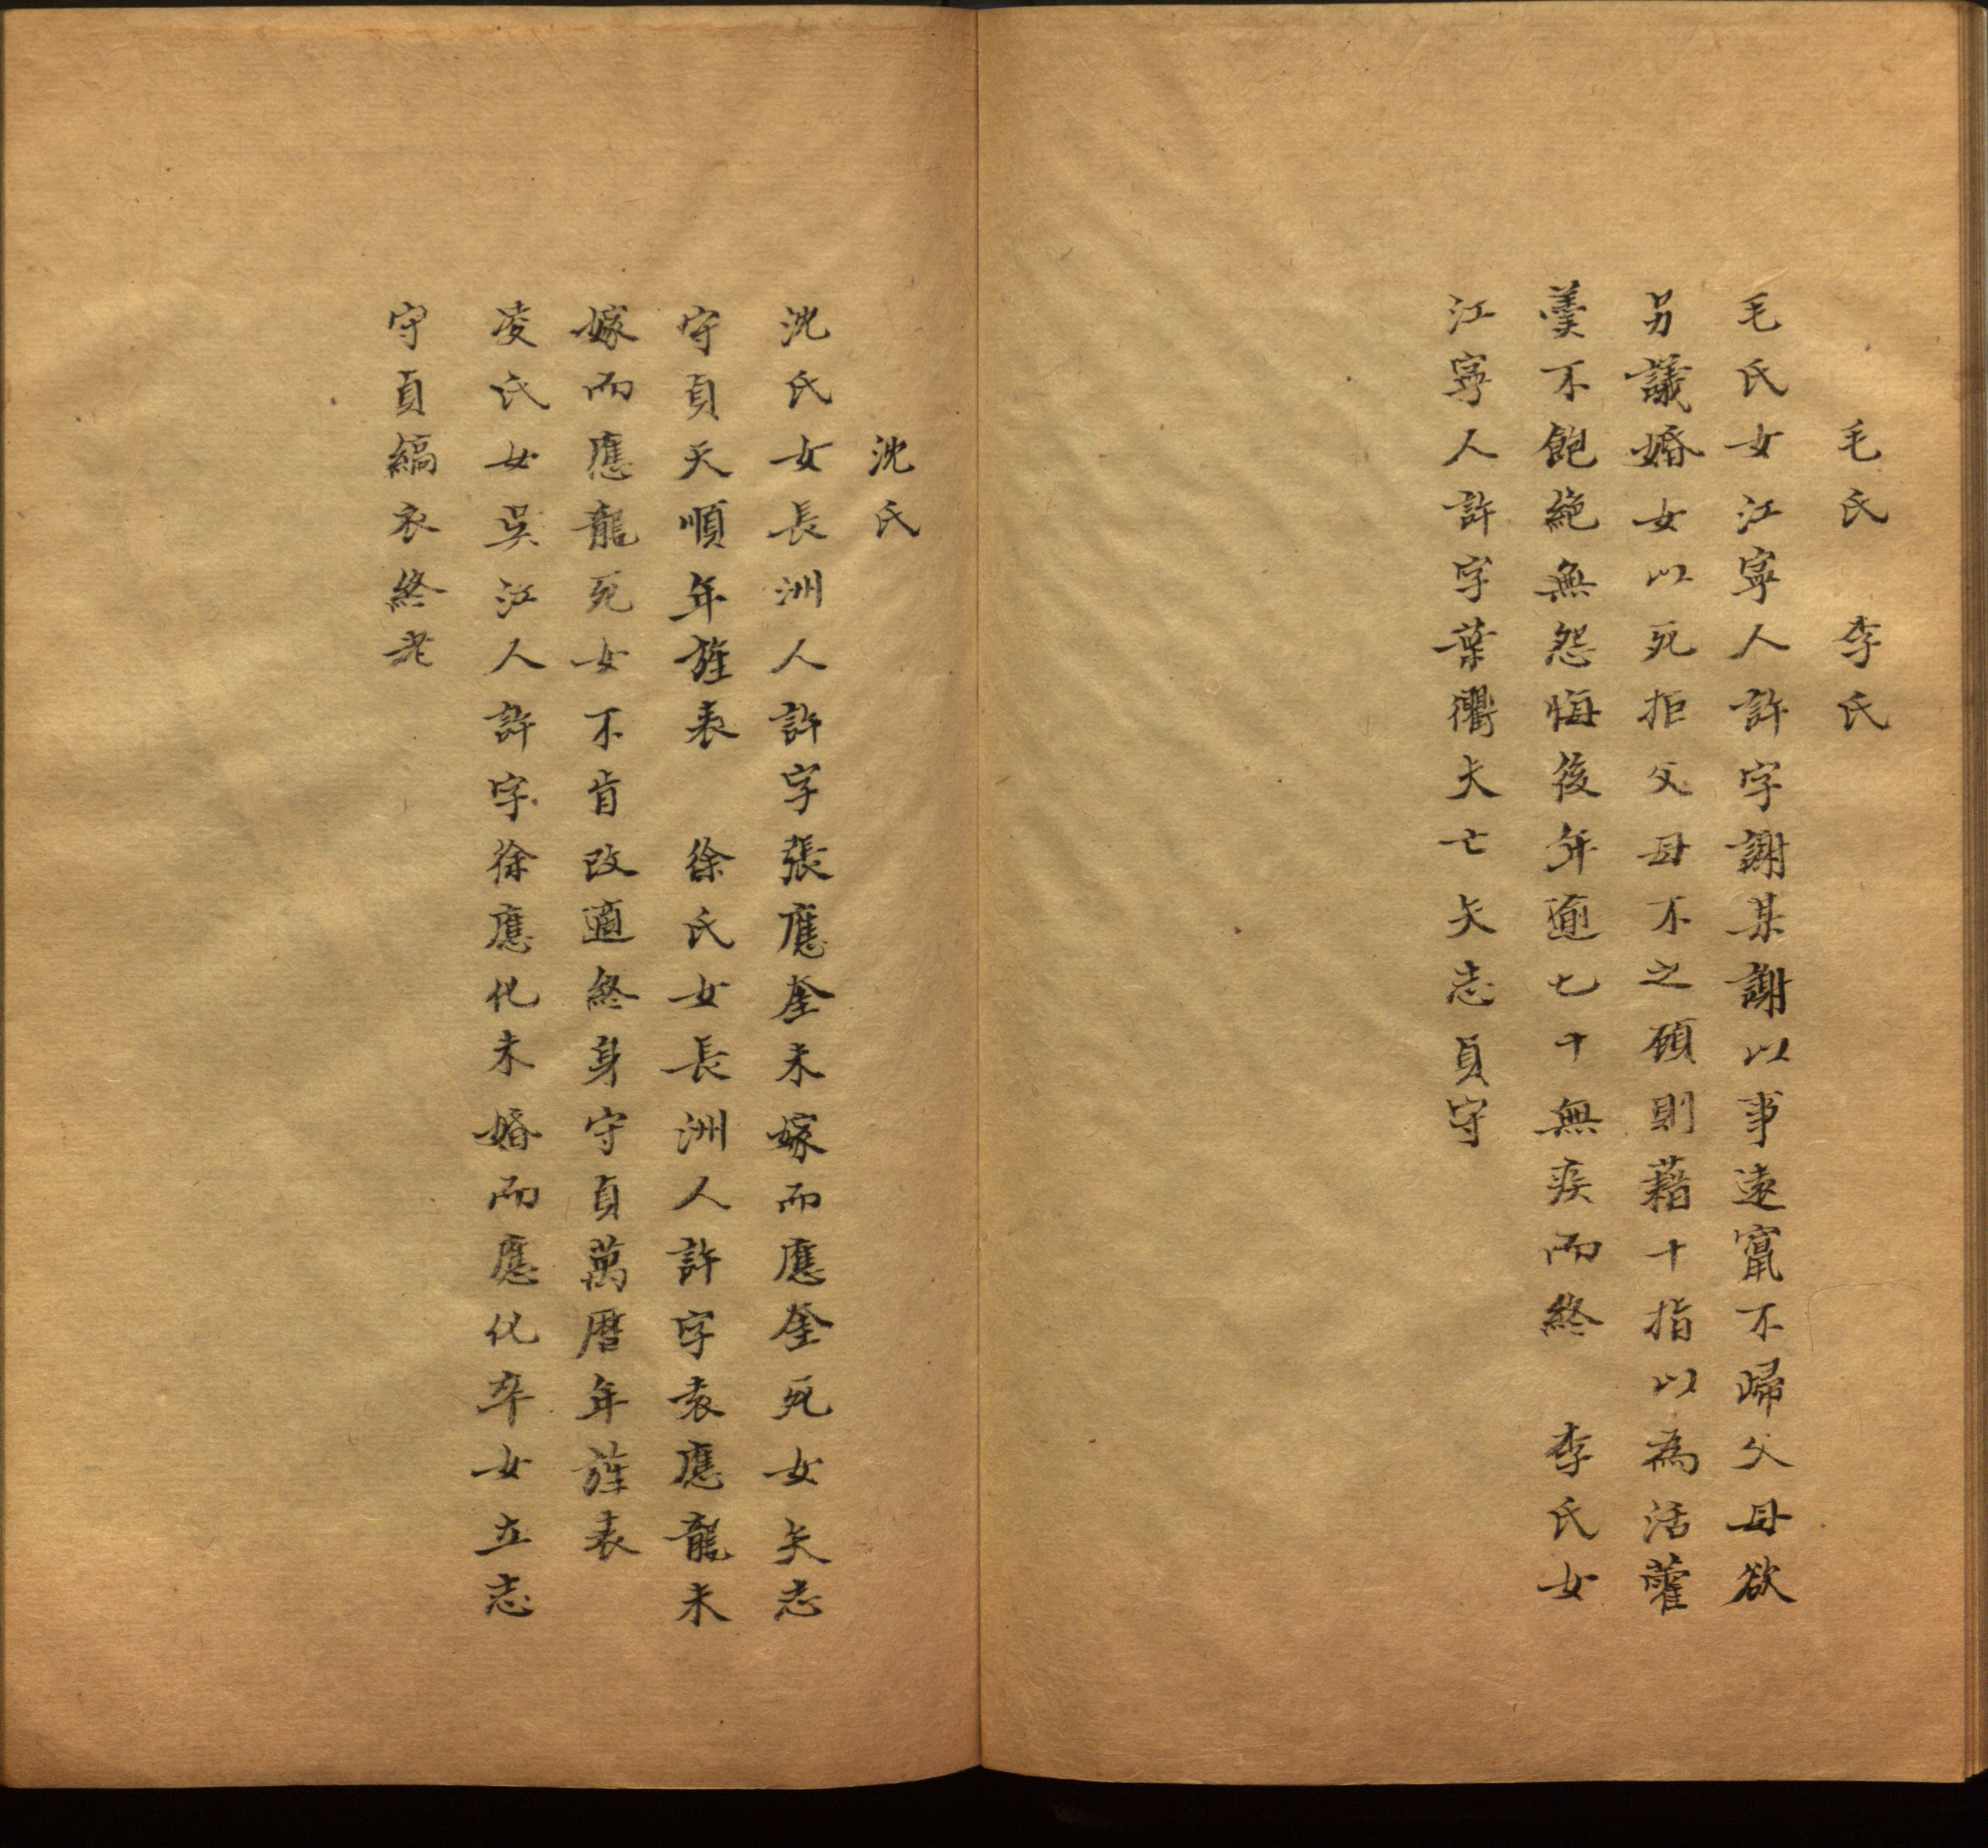 毛氏　李氏
毛氏女江寧人許字謝某謝以事遠竄不歸父母欲
另議婚女以死拒父母不之顧則藉十指以為活藿
羹不飽絶無怨悔後年逾七十無疾而終　李氏女
江寧人許字葉衢夫亡矢志貞守
沈氏
沈氏女長洲人許字張應奎未嫁而應奎死女矢志
守貞天順年旌表　徐氏女長洲人許字袁應龍未
嫁而應龍死女不肯改適終身守貞萬曆年旌表
凌氏女吳江人許字徐應化未婚而應化卒女立志
守貞縞衣終老